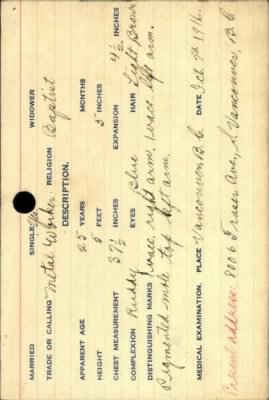 MARRIED SINGLE Yes WIDOWER
TRADE OR CALLING Metal Worker RELIGION Baptist
DESCRIPTION.
APPARENT AGE 25 YEARS MONTHS
HEIGHT 5 FEET 5 INCHES
CHEST MEASUREMENT 37½ INCHES EXPANSION 4½ INCHES
COMPLEXION Ruddy EYES Blue HAIR Light Brown
DISTINGUISHING MARKS 1 vacc. right arm. 1 vacc. left arm.
Pigmented mole top left arm.
MEDICAL EXAMINATION. PLACE Vancouver, B.C. DATE Oct. 7th 1916.
Present address: 8006 Fraser Ave, S. Vancouver, B.C.